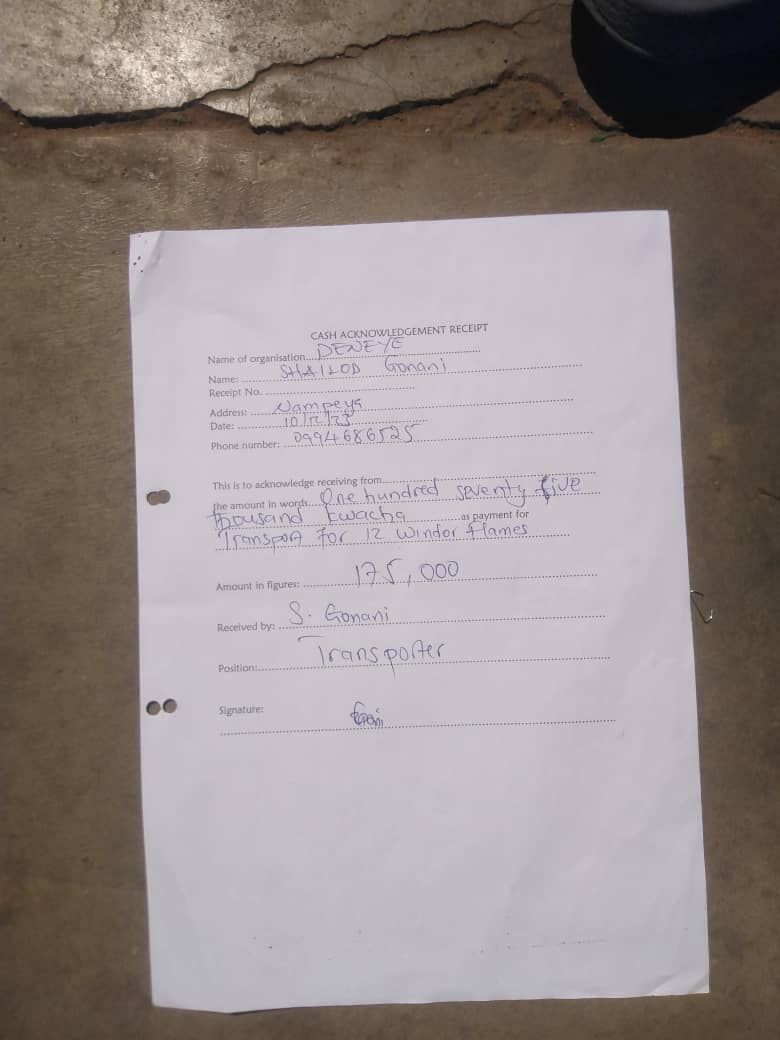 CASH ACKNOWLEDGEMENT RECEIPT
Name of organisation.... DENEYE
Name: .... SHAILOD Gonani
Receipt No. ....
Address: .... Nampeya
Date: .... 10/12/23
Phone number: .... 0994686525
This is to acknowledge receiving from....
the amount in words.... One hundred seventy five
thousand kwacha ....as payment for
Transport for 12 windor flames
Amount in figures: .... 175,000
Received by: .... S. Gonani
Position:.... Transporter
Signature: